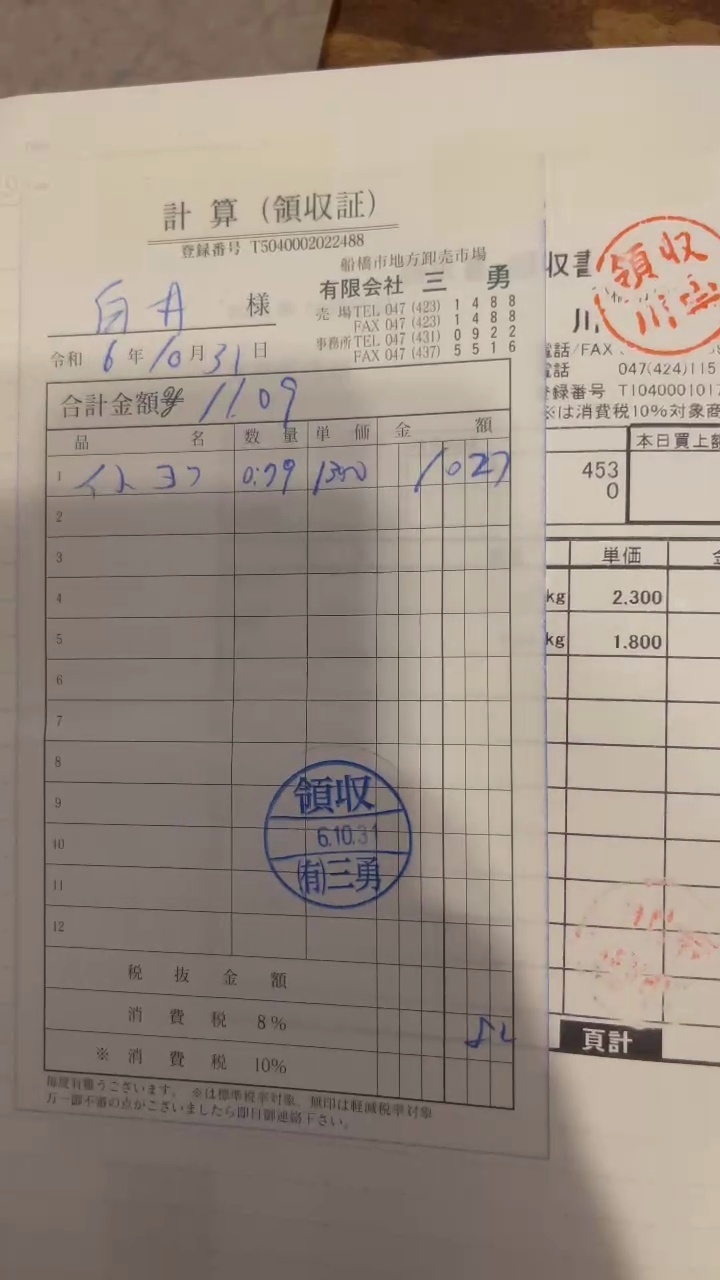 計 算 (領収証)
登録番号 T5040002022488
船橋市地方卸売市場
有限会社 三 勇
売 場 TEL 047 (423) 1488
FAX 047 (423) 1488
事務所 TEL 047 (431) 0922
FAX 047 (437) 5516
白井 様
令和 6 年 10 月 31 日
合計金額 1109
品 名 数 量 単 価 金 額
1 イトヨリ 0.79 1300 1027
2
3
4
5
6
7
8
9
10
11
12
領収
6.10.31
(有)三勇
税 抜 金 額
消 費 税 8% 82
※ 消 費 税 10%
毎度有難うございます。 ※は標準税率対象、無印は軽減税率対象
万一御不審の点がございましたら即日御連絡下さい。
収書
領収
川
電話/FAX
電話 047(424)115
登録番号 T1040001017
※は消費税10%対象商
本日買上額
453
0
単価 金
kg 2.300
kg 1.800
頁計